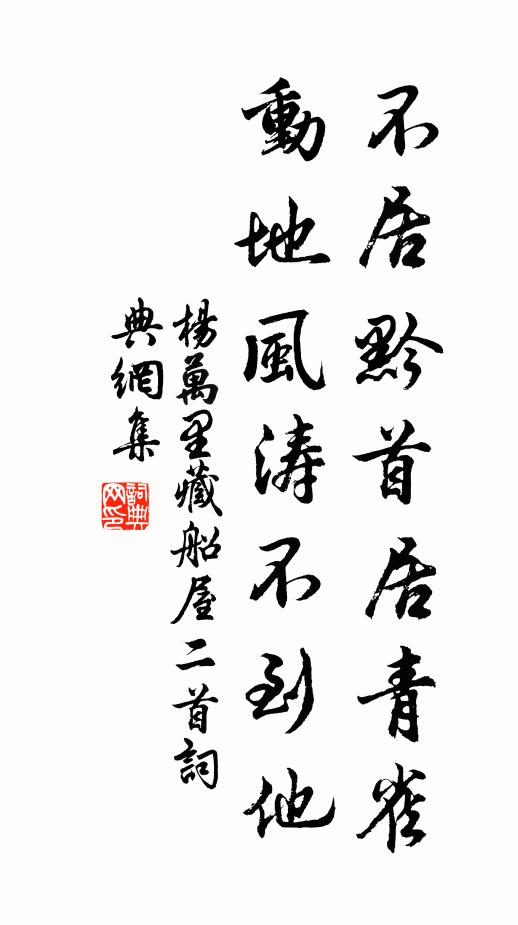 不居黔首居青雀
動地風濤不到他
楊萬里藏船屋二首詞
典網集
詞典
网印